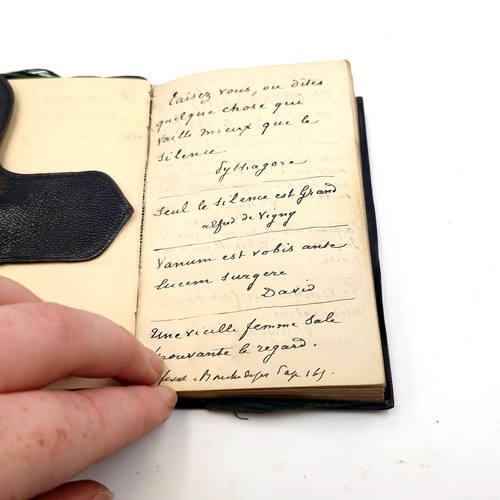 Taisez vous, ou dites
quelque chose qui
vaille mieux que le
silence
Pythagore
Seul le silence est Grand
alfred de Vigny
Vanum est vobis ante
lucem surgere
David
Une vieille femme sale
épouvante le regard.